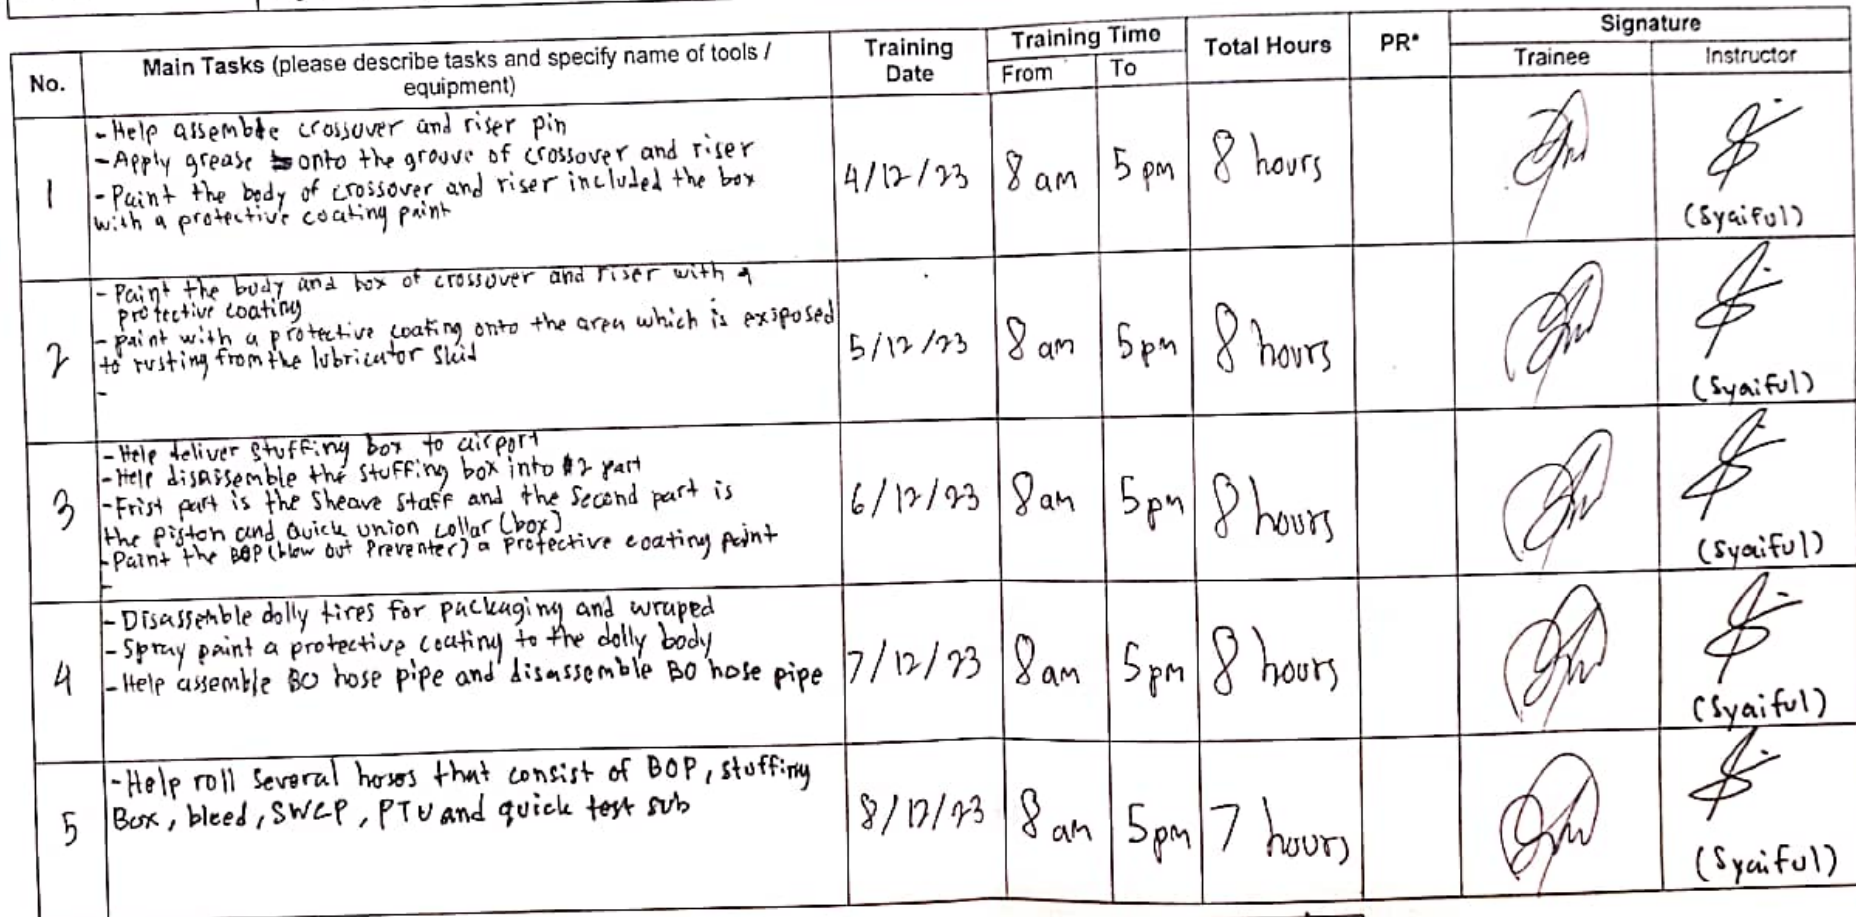 No.
Main Tasks (please describe tasks and specify name of tools /
equipment)
Training
Date
Training Time
From
To
Total Hours
PR*
Signature
Trainee
Instructor
1
- Help assemble crossover and riser pin
- Apply grease onto the groove of crossover and riser
- Paint the body of crossover and riser included the box
with a protective coating paint
4/12/23
8 am
5 pm
8 hours
(Syaiful)
2
- Paint the body and box of crossover and riser with a
protective coating
- paint with a protective coating onto the area which is exiposed
to rusting from the lubricator skid
-
5/12/23
8 am
5pm
8 hours
(Syaiful)
3
- Help deliver stuffing box to airport
- Help disassemble the stuffing box into 2 part
- Frist part is the Sheave staff and the Second part is
the piston and Quick union collar (box)
- Paint the BOP (blow out Preventer) a Protective coating paint
-
6/12/23
8am
5pm
8 hours
(Syaiful)
4
- Disassemble dolly tires for packaging and wraped
- Spray paint a protective coating to the dolly body
- Help assemble BO hose pipe and disassemble BO hose pipe
7/12/23
8am
5pm
8 hours
(Syaiful)
5
- Help roll several hoses that consist of BOP, stuffing
Box, bleed, SWCP, PTU and quick test sub
8/12/23
8 am
5pm
7 hours
(Syaiful)